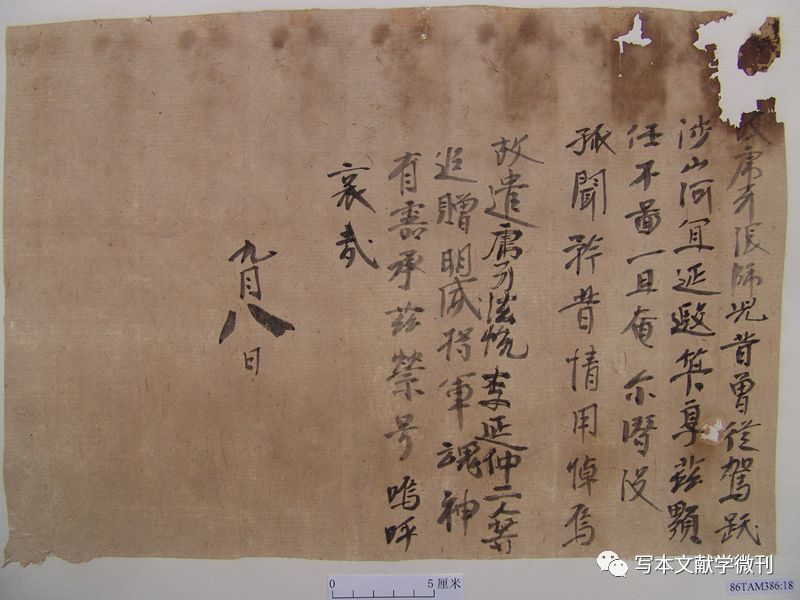 虎牙張師兒昔曾從駕跋
涉山河宜延遐筭享茲顯
任不圖一旦奄尔翳没
孤聞矜昔情用悼焉
故遣虎牙僧悅延仲二人等
追贈明威將軍魂神
有靈承茲榮号嗚呼
哀哉
九月八日
0 5 厘米
写本文献学微刊
86TAM386:18